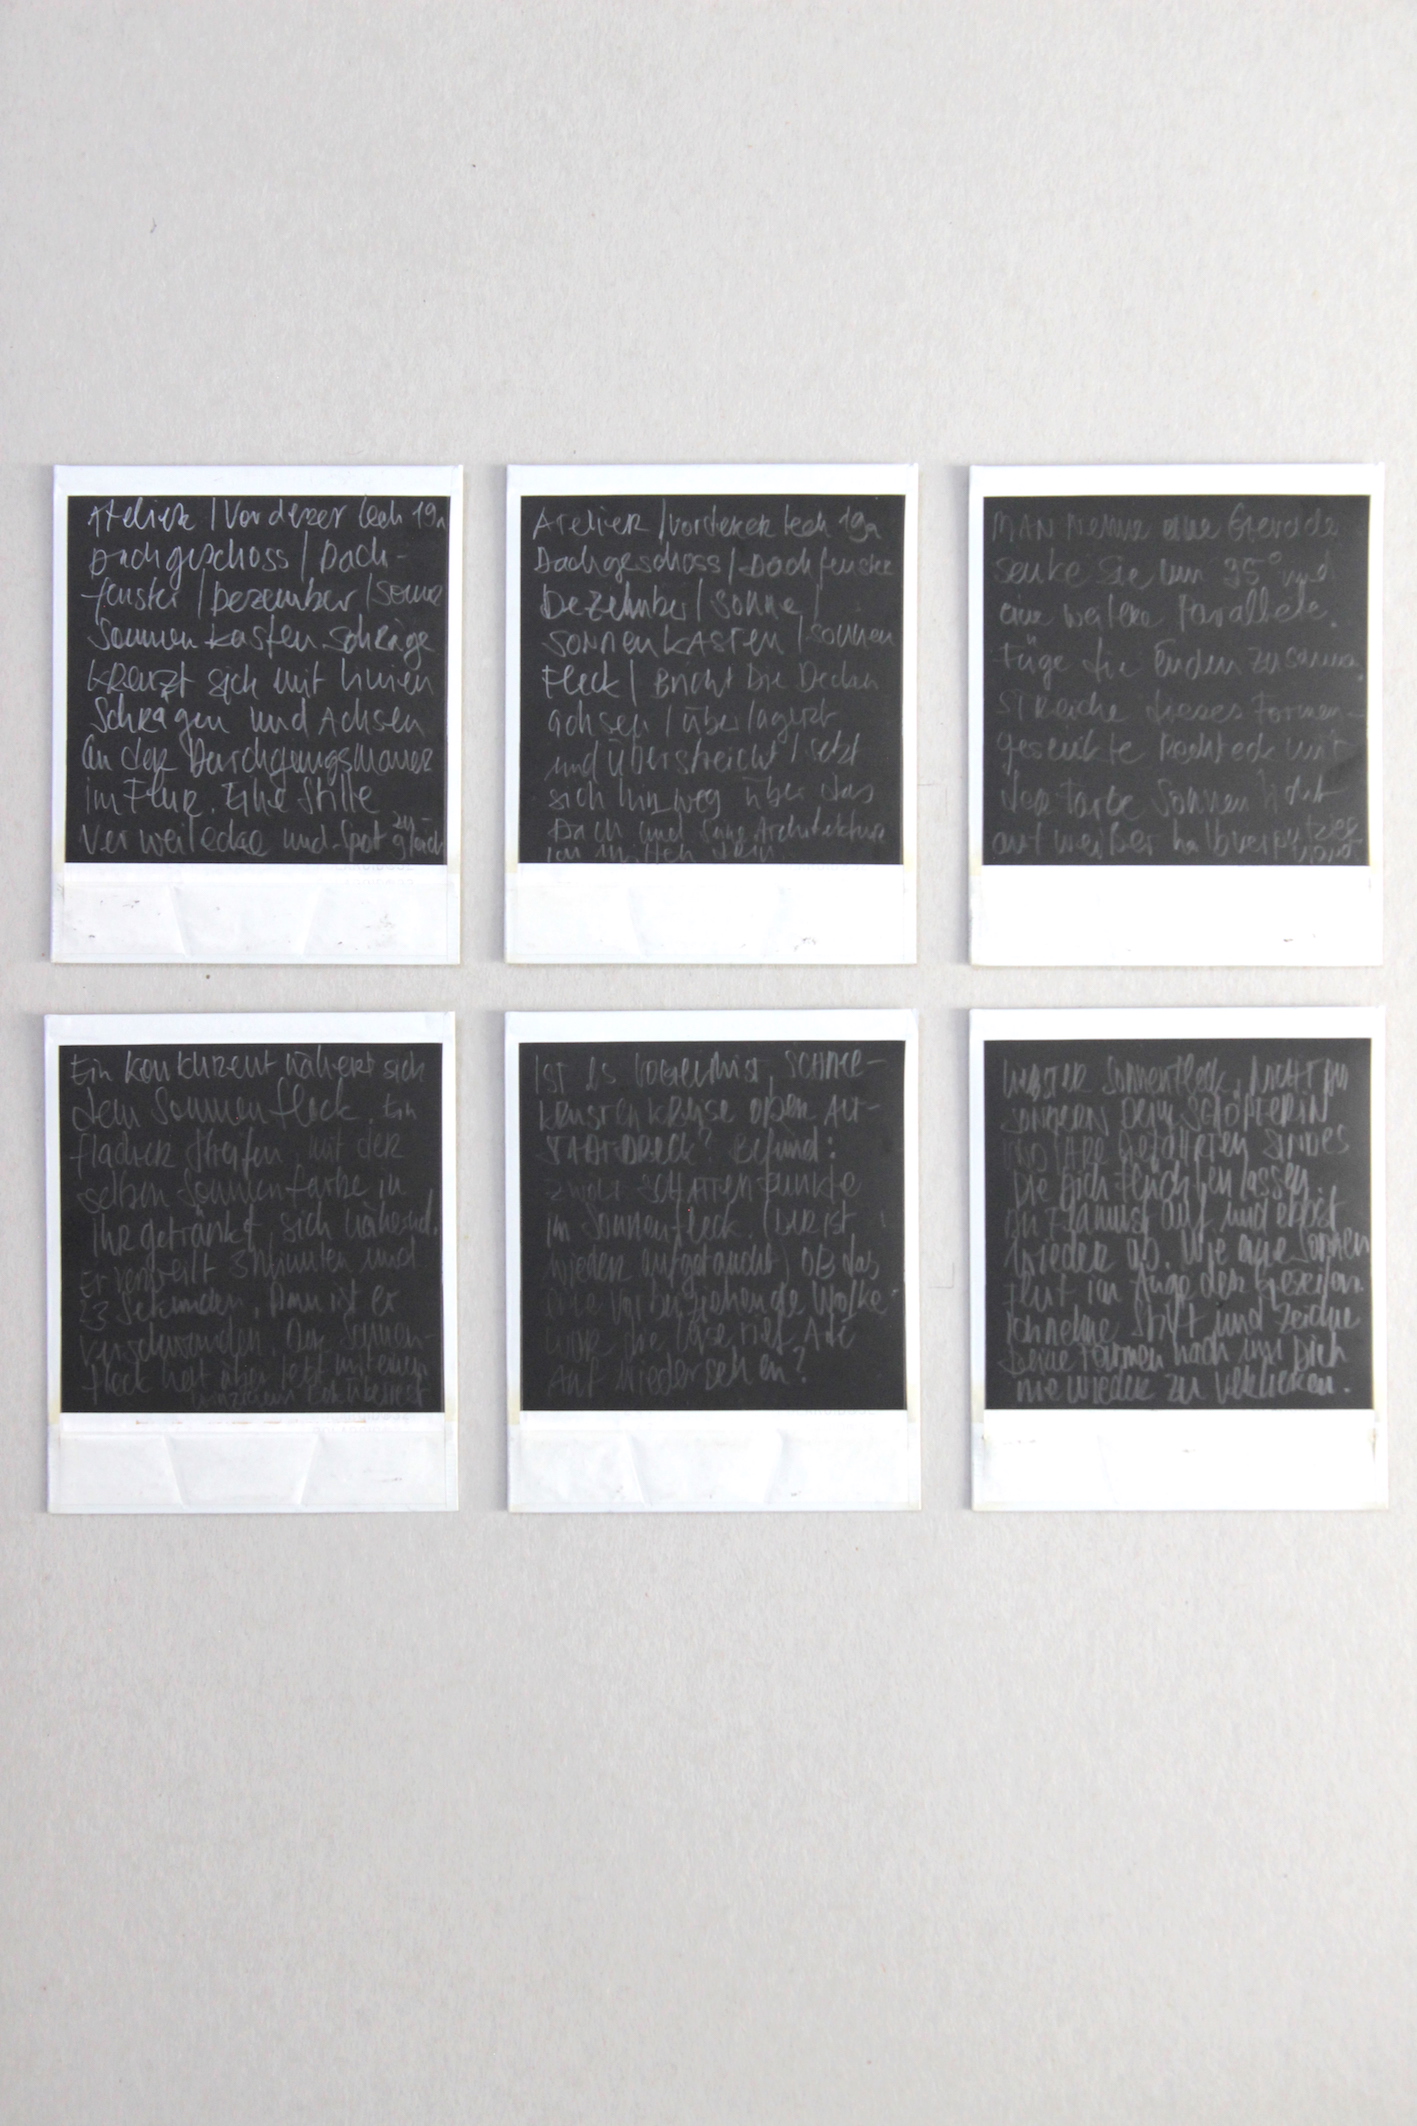 Atelier / Vorderer Lech 19a
Dachgeschoss / Dach-
fenster / Dezember / Sonne
Sonnenkasten. Schräge
kreuzt sich mit Linien
Schrägen und Achsen
an der Durchgangsmauer
im Flur. Eine Stille
Verweilecke und Spot zu-
gleich
Atelier / Vorderer Lech 19a
Dachgeschoss / Dachfenster
Dezember / Sonne /
SONNENKASTEN / Sonnen
Fleck / Bricht Die Decken
achsen / überlagert
und überstreicht / setzt
sich hinweg über das
Dach und seine Architektur
MAN Nehme eine Gerade
senke Sie um 35° und
eine weitere Parallele.
Füge die Enden zusammen.
STReiche dieses Formen-
gesenkte Rechteck mit
der Farbe Sonnen
auf weißer halbverputzter
Ein Konkurrent nähert sich
dem Sonnenfleck. Ein
flacher Streifen mit der
selben Sonnenfarbe in
ihr getränkt, sich nähernd.
Er verweilt 3 Minuten und
23 Sekunden, Dann ist er
verschwunden. Der Sonnen-
fleck
IST ES
oder Alt-
STADTDRECK? Befund:
zwölf SCHATTENpunkte
im Sonnenfleck.
wieder aufgetaucht, OB das
vorbeiziehende Wolke
war die leise rief Ade
Auf Wiedersehen?
Sonnenfleck, NICHT
SONDERN DEINE SCHÖPFERIN
UND IHRE Gefährten SIND ES
Die Dich
auf und ebbst
wieder ab. Wie eine Sonnen
flut im Auge der Gezeiten.
Ich nehme Stift und zeichne
Deine Formen nach um Dich
nie wieder zu verlieren.